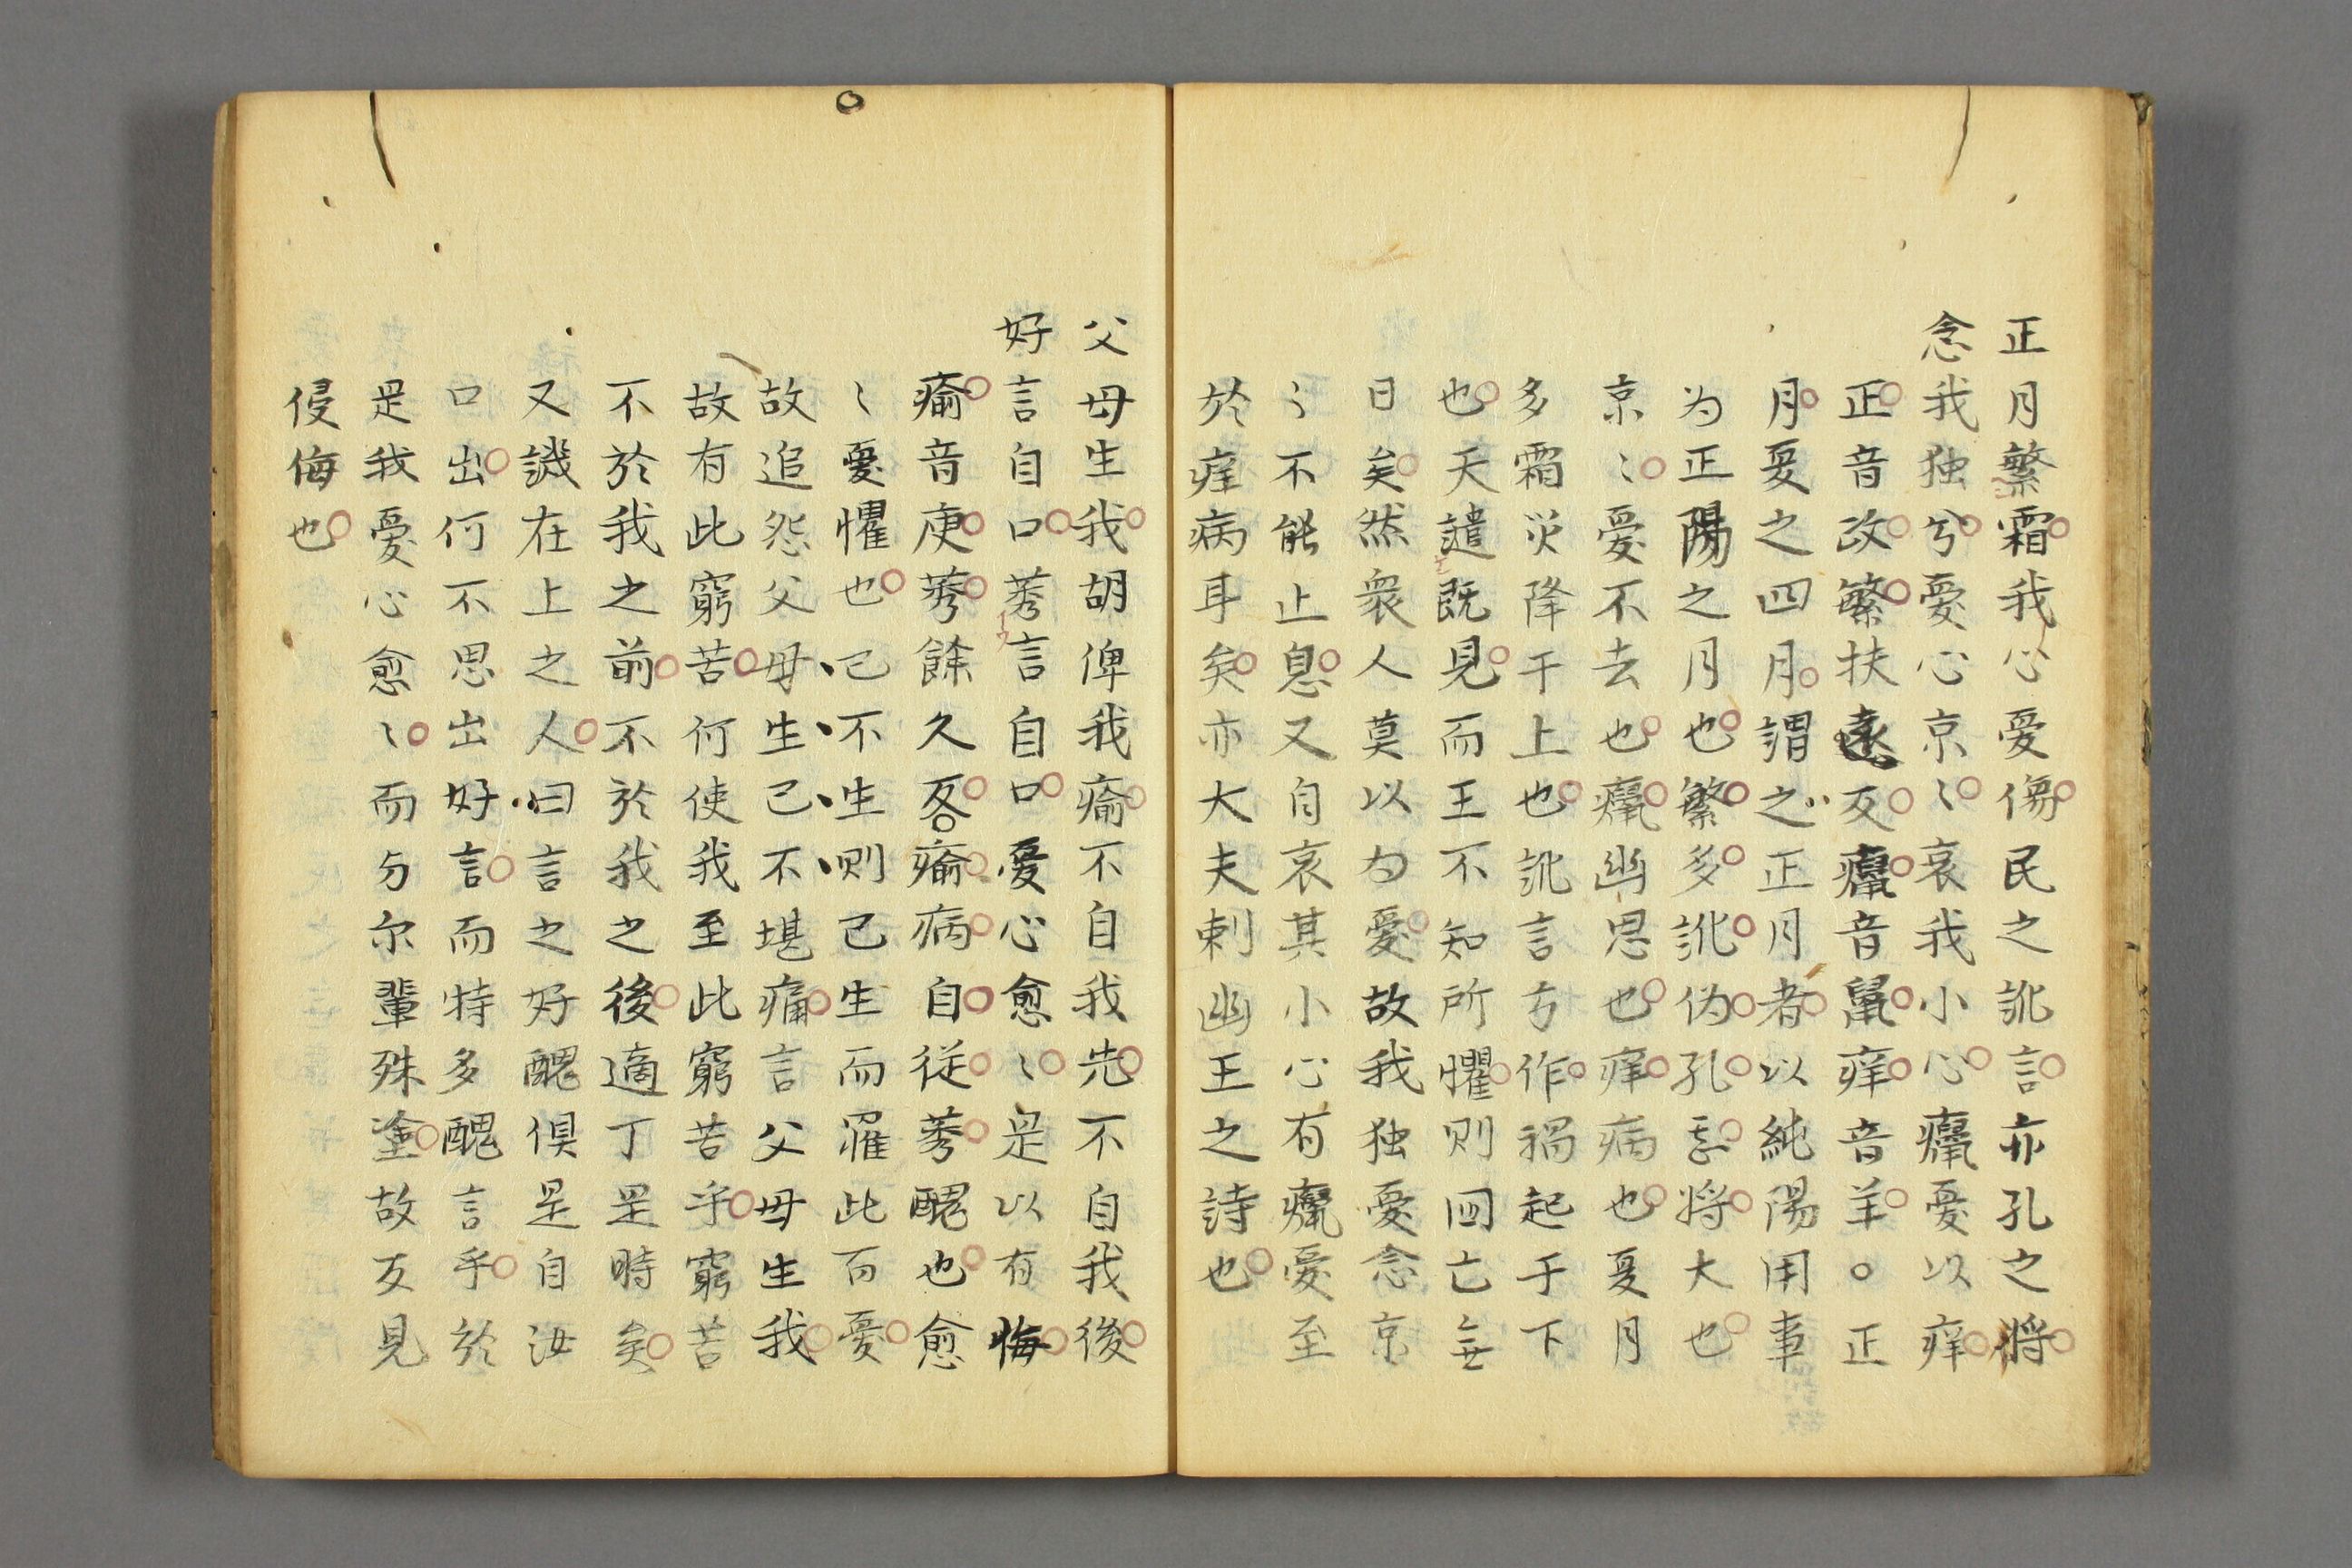 正月繁霜我心憂傷民之訛言亦孔之将
念我独兮憂心京〻哀我小心癙憂以痒
正音政繁扶遠反癙音鼠痒音羊○正
月夏之四月謂之正月者以純陽用事
为正陽之月也繁多訛伪孔甚将大也
京〻憂不去也癙幽思也痒病也夏月
多霜災降于上也訛言方作禍起于下
也天譴既見而王不知所懼則国亡無
日矣然衆人莫以为憂故我独憂念京
〻不能止息又自哀其小心有癙憂至
於痒病耳矣亦大夫刺幽王之詩也
父母生我胡俾我瘉不自我先不自我後
好言自口莠言自口憂心愈〻是以有侮
瘉音庾莠餘久反○瘉病自従莠醜也愈
〻憂懼也己不生則己生而罹此百憂
故追怨父母生己不堪痛言父母生我
故有此窮苦何使我至此窮苦乎窮苦
不於我之前不於我之後適丁是時矣
又譏在上之人曰言之好醜倶是自汝
口出何不思出好言而特多醜言乎於
是我憂心愈〻而与尔輩殊塗故反見
侵侮也